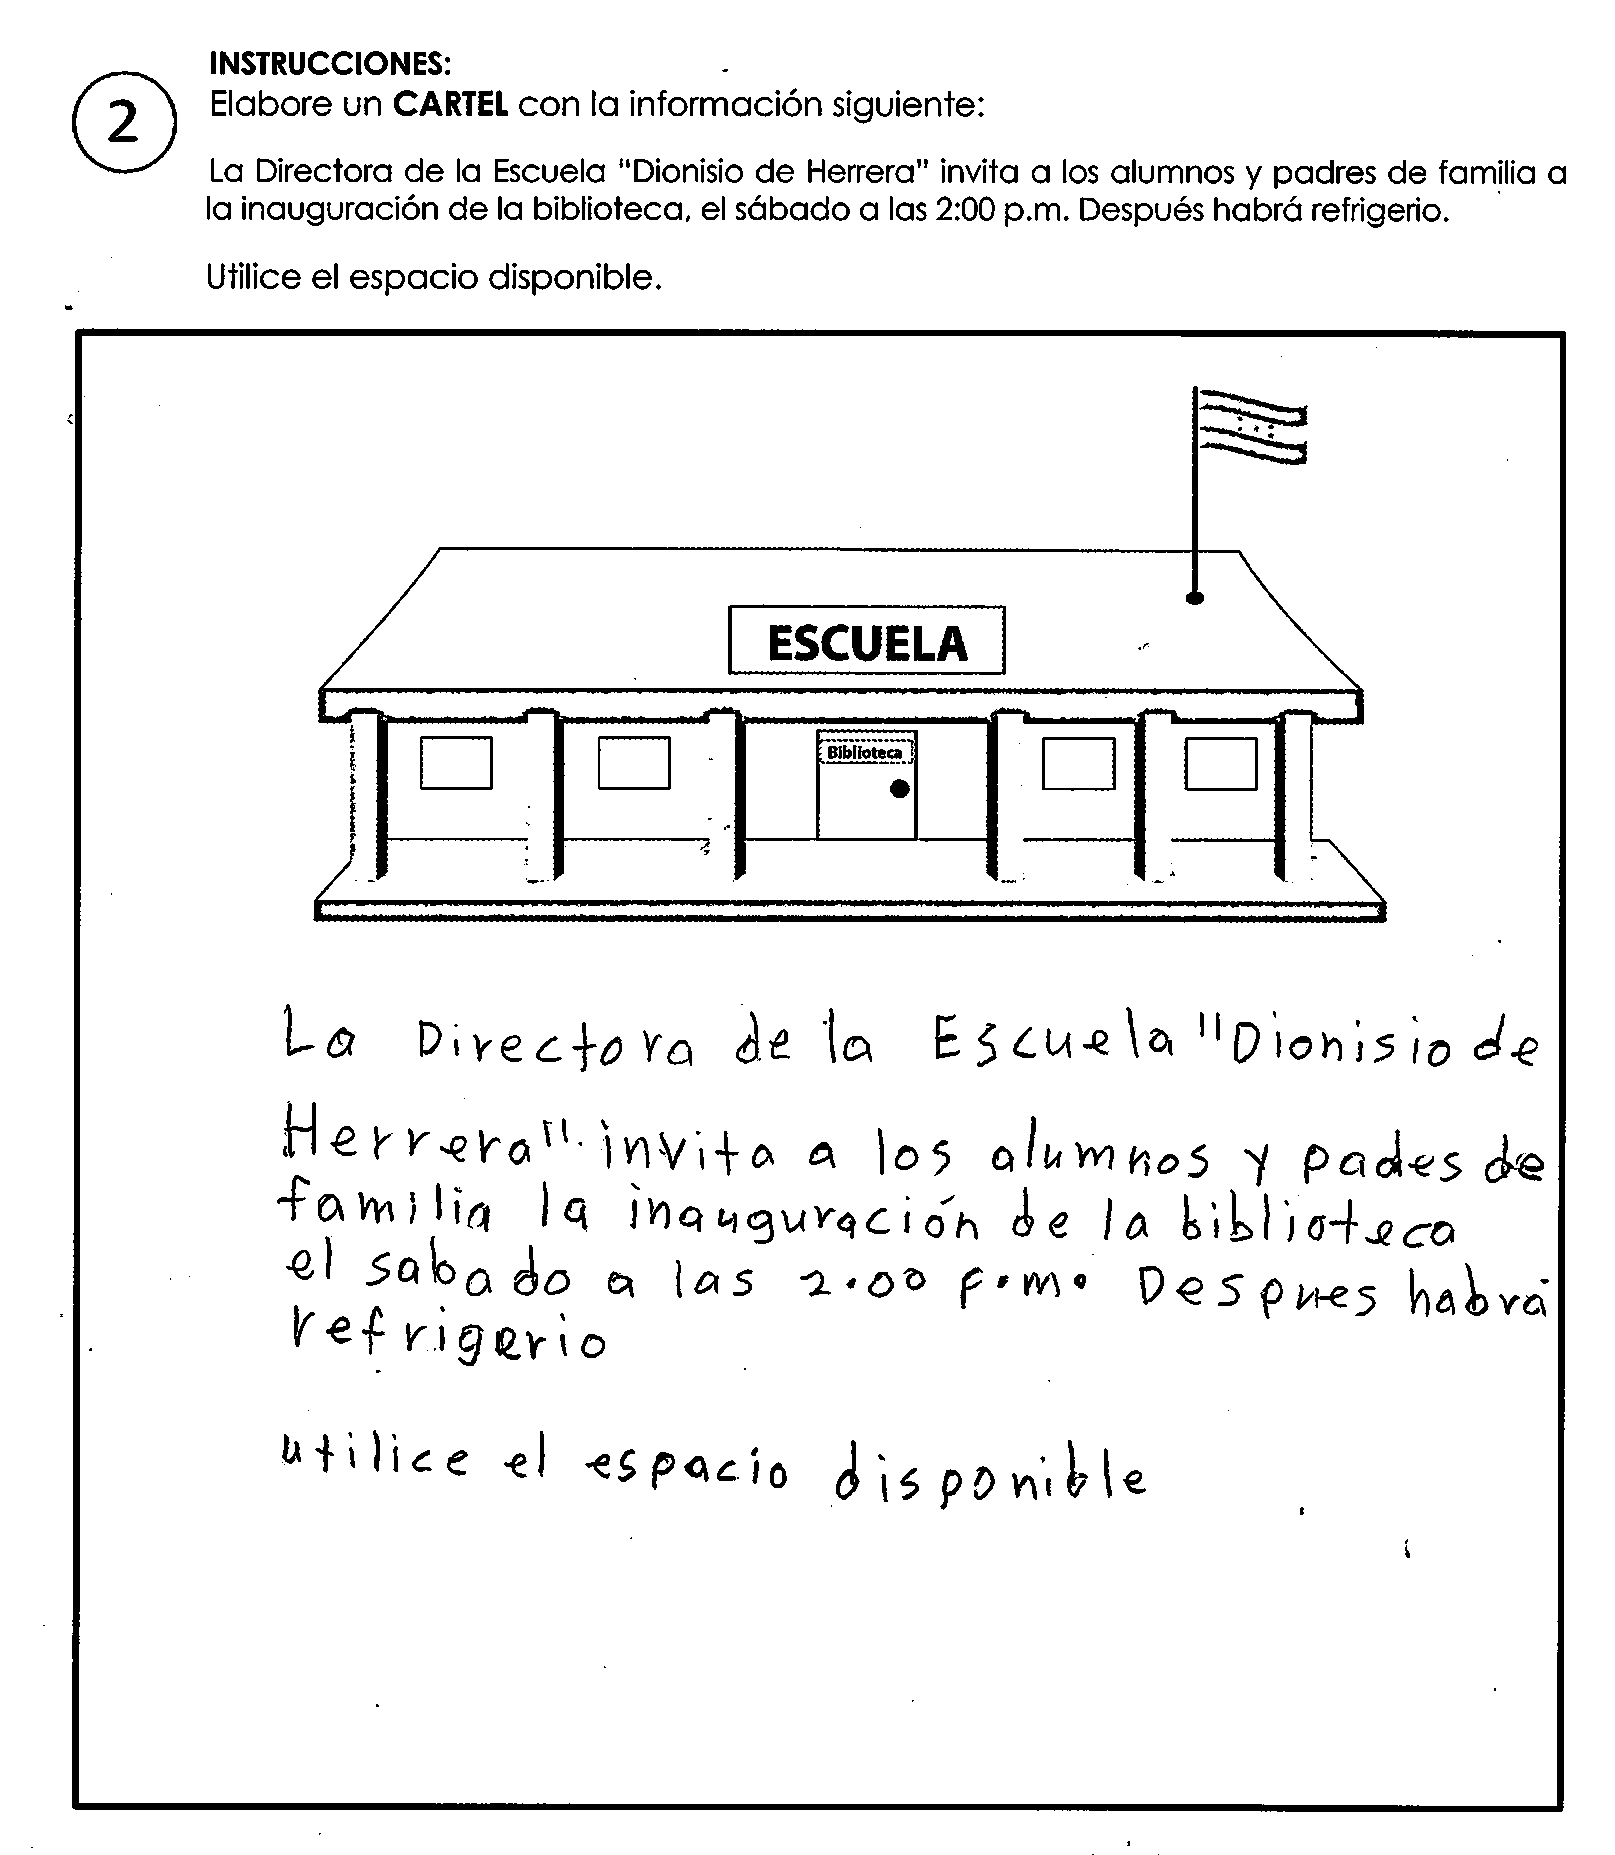 INSTRUCCIONES:
2
Elabore un CARTEL con la información siguiente:
La Directora de la Escuela "Dionisio de Herrera" invita a los alumnos y padres de familia a
la inauguración de la biblioteca, el sábado a las 2:00 p.m. Después habrá refrigerio.
Utilice el espacio disponible.
ESCUELA
Biblioteca
La Directora de la Escuela "Dionisio de
Herrera" invita a los alumnos y pades de
familia la inauguración de la biblioteca
el sabado a las 2.00 p.m. Despues habrá
refrigerio
utilice el espacio disponible